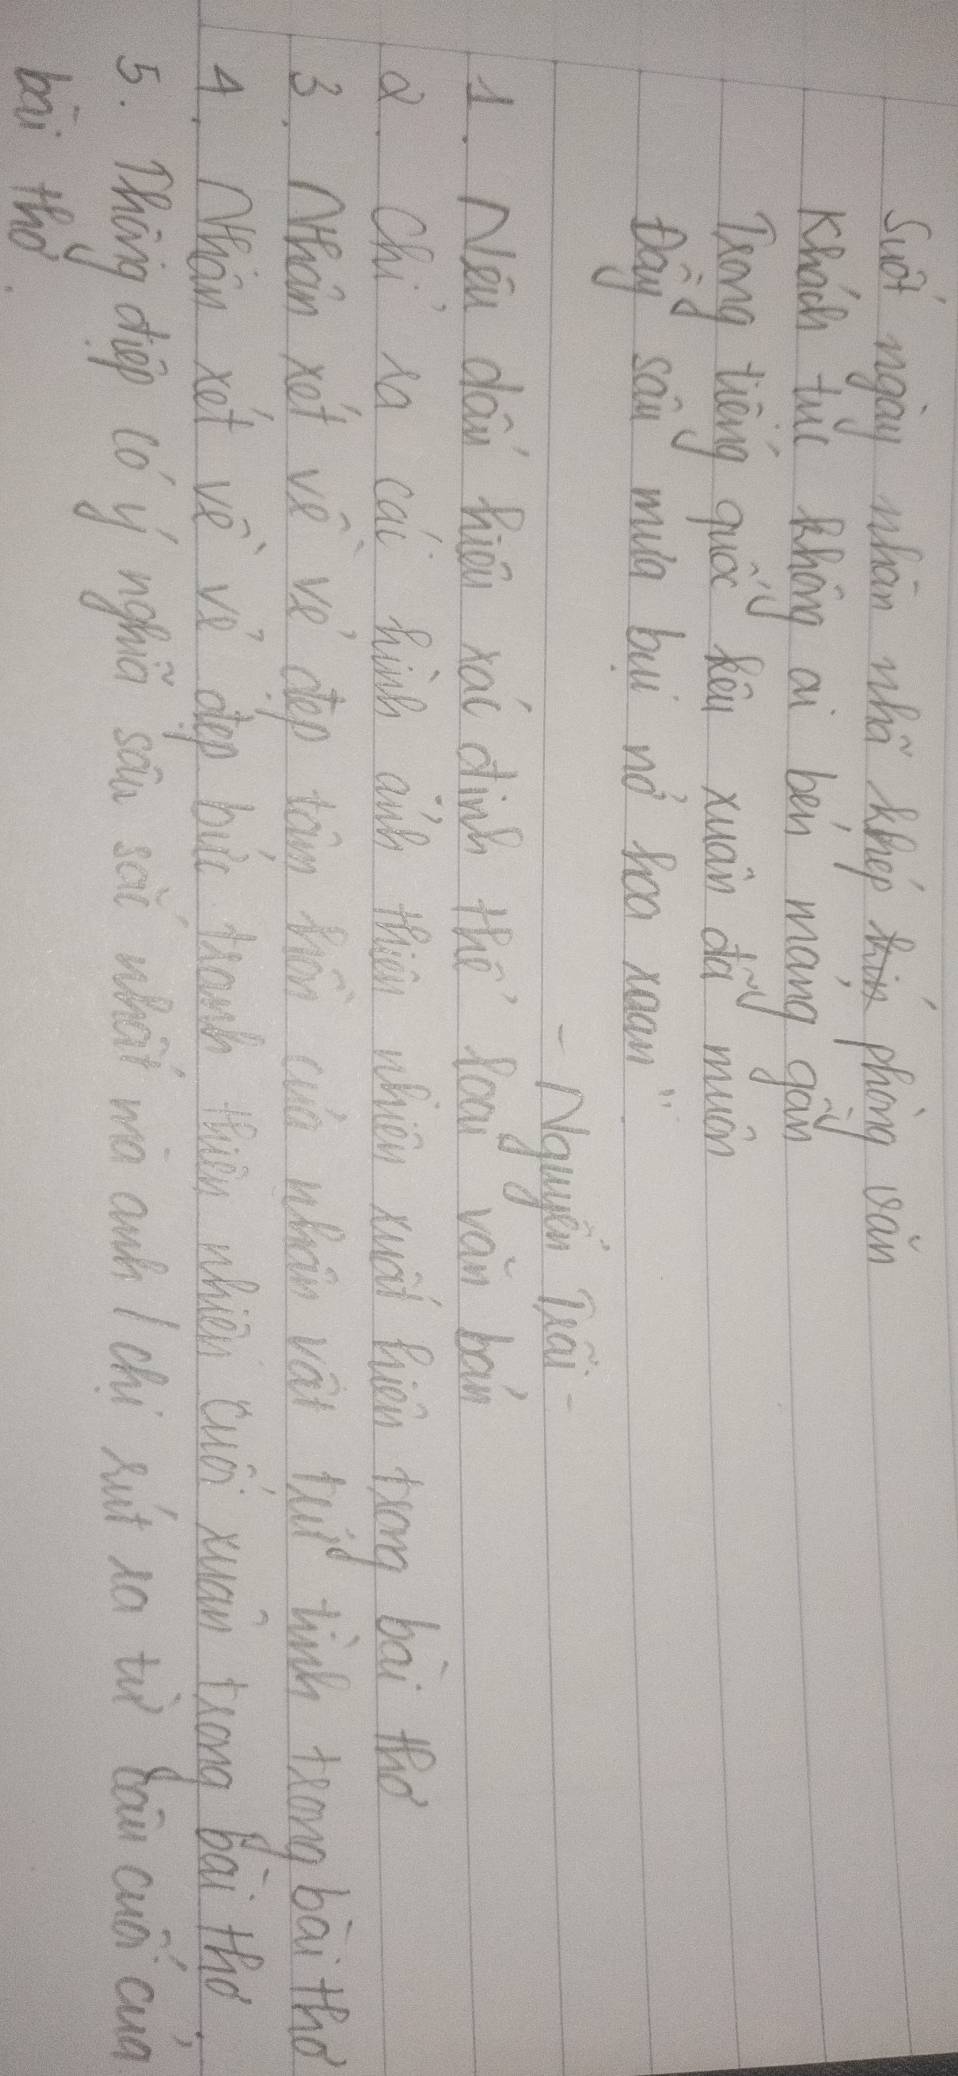 Suốt ngày nhàn nhã khép phòng văn
Khách tục không ai bén mảng gần
Trong tiếng quốc kêu xuân đã muộn
Đầy sân mưa bụi nở hoa xoan"
- Nguyễn Trãi -
1. Nêu dấu hiệu xác định thể loại văn bản
2. Chỉ ra các hình ảnh thiên nhiên xuất hiện trong bài thơ
3. Nhận xét về vẻ đẹp tâm hồn của nhân vật trữ tình trong bài thơ
4. Nhận xét về vẻ đẹp bức tranh thiên nhiên cuối xuân trong bài thơ.
5. Thông điệp có ý nghĩa sâu sắc nhất mà anh / chị rút ra từ câu cuối của
bài thơ.